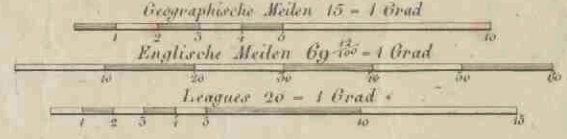 Geographische Meilen 15 = 1 Grad
1 2 3 4 5 10
Englische Meilen 69 12/100 = 1 Grad
10 20 30 40 50 60
Leagues 20 = 1 Grad
1 2 3 4 5 10 15